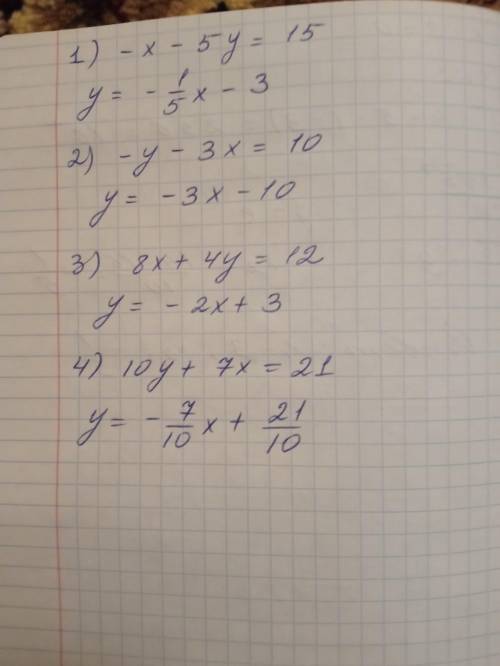 1) -x - 5y = 15
y = -1/5x - 3
2) -y - 3x = 10
y = -3x - 10
3) 8x + 4y = 12
y = -2x + 3
4) 10y + 7x = 21
y = -7/10x + 21/10